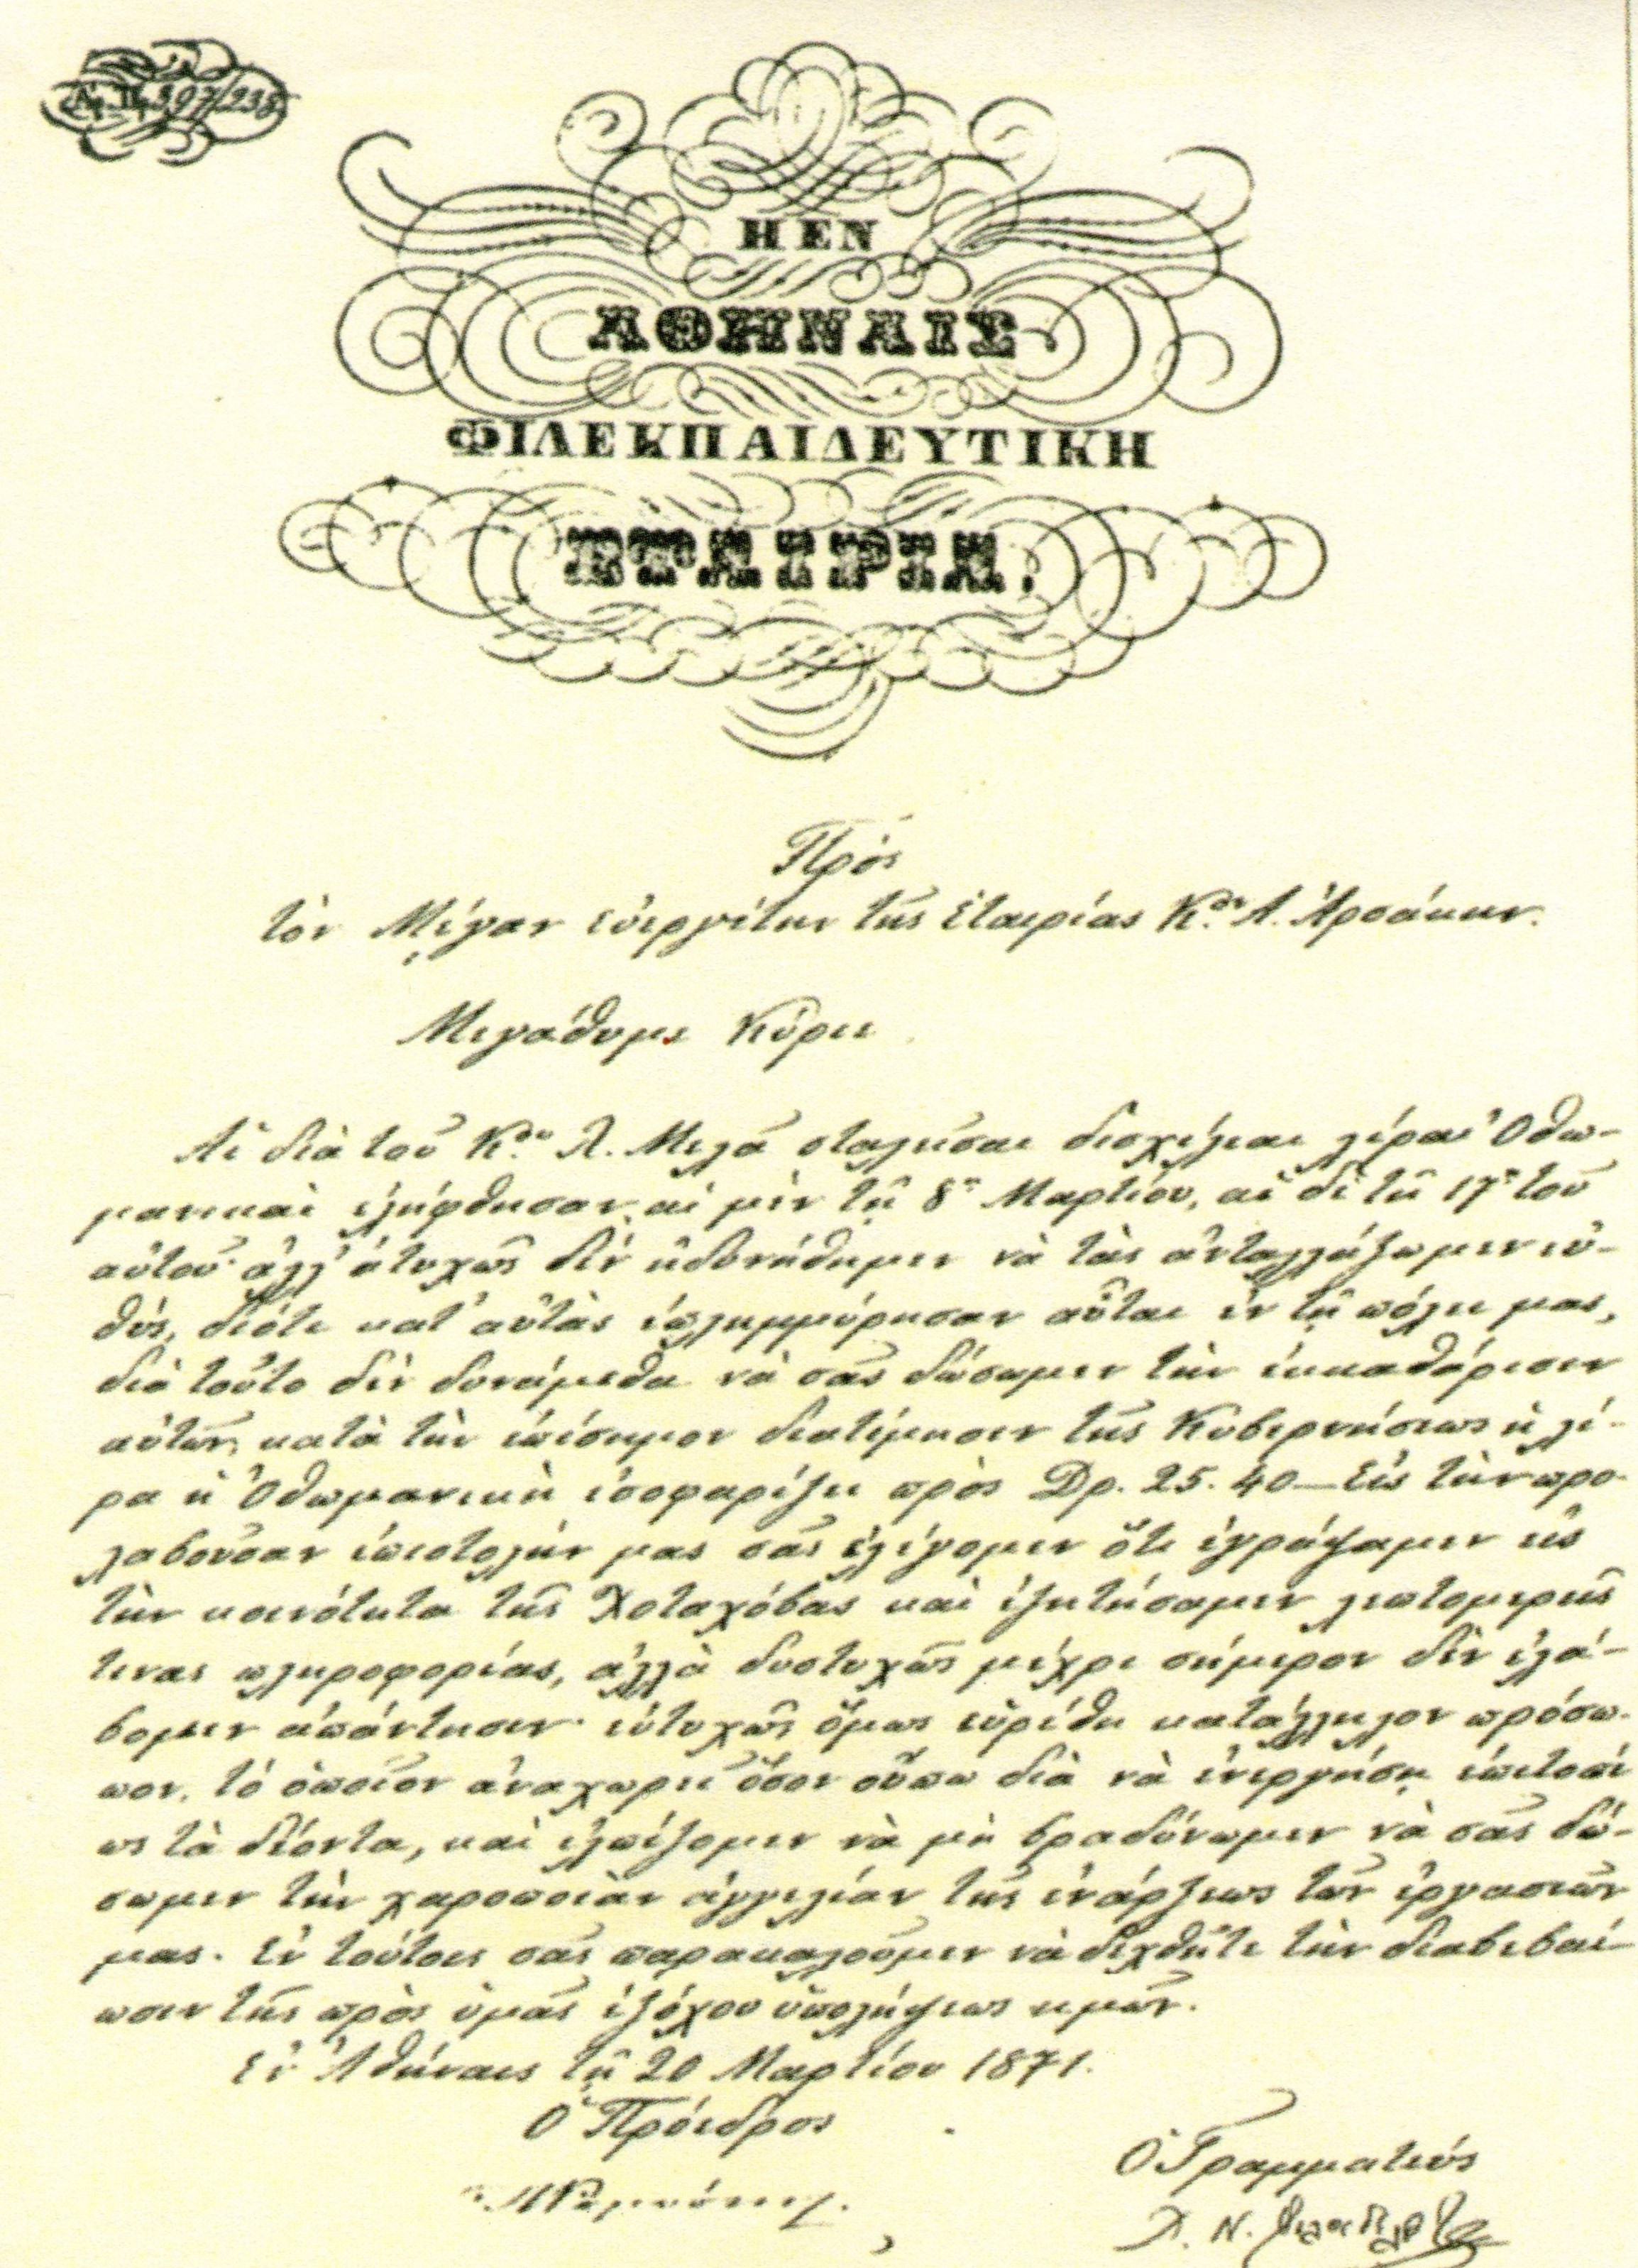 Α. Π. 397/238
Η ΕΝ
ΑΘΗΝΑΙΣ
ΦΙΛΕΚΠΑΙΔΕΥΤΙΚΗ
ΕΤΑΙΡΙΑ.
Πρὸς
τὸν Μέγαν εὐεργέτην τῆς ἑταιρίας Κον Α. Ἀρσάκην.
Μεγάθυμε Κύριε
Αἱ διὰ τοῦ Κου Λ. Μελᾶ σταλεῖσαι δισχίλιαι λίραι Ὀθω-
μανικαὶ ἐλήφθησαν, αἱ μὲν τῇ 8ῃ Μαρτίου, αἱ δὲ τῇ 17ῃ τοῦ
αὐτοῦ· ἀλλ' ἀτυχῶς δὲν ἠδυνήθημεν νὰ τὰς ἀνταλλάξωμεν εὐ-
θύς, διότι κατ' αὐτὰς ἐπλημμύρησαν αὗται ἐν τῇ πόλει μας,
διὰ τοῦτο δὲν δυνάμεθα νὰ σᾶς δώσωμεν τὴν ἐκκαθάρισιν
αὐτῶν, κατὰ τὴν ἐπίσημον διατίμησιν τῆς Κυβερνήσεως ἡ λί-
ρα ἡ Ὀθωμανικὴ ἰσοφαρίζει πρὸς Δρ. 25.40— Εἰς τὴν προ-
λαβοῦσαν ἐπιστολήν μας σᾶς ἐλέγομεν ὅτι ἐγράψαμεν εἰς
τὴν κοινότητα τῆς Χοταχόβας καὶ ἐζητήσαμεν λεπτομερεῖς
τινας πληροφορίας, ἀλλὰ δυστυχῶς μέχρι σήμερον δὲν ἐλά-
βομεν ἀπάντησιν· εὐτυχῶς ὅμως εὑρέθη κατάλληλον πρόσω-
πον, τὸ ὁποῖον ἀναχωρεῖ ὅσον οὔπω διὰ νὰ ἐνεργήσῃ ἐπιτοπί
ως τὰ δέοντα, καὶ ἐλπίζομεν νὰ μὴ βραδύνωμεν νὰ σᾶς δώ-
σωμεν τὴν χαροποιὰν ἀγγελίαν τῆς ἐνάρξεως τῶν ἐργασιῶν
μας. Ἐν τούτοις σᾶς παρακαλοῦμεν νὰ δεχθῆτε τὴν διαβεβαί-
ωσιν τῆς πρὸς ὑμᾶς ἐξόχου ὑπολήψεως ἡμῶν.
Ἐν Ἀθήναις τῇ 20 Μαρτίου 1871.
Ὁ Πρόεδρος
Ὁ Γραμματεύς